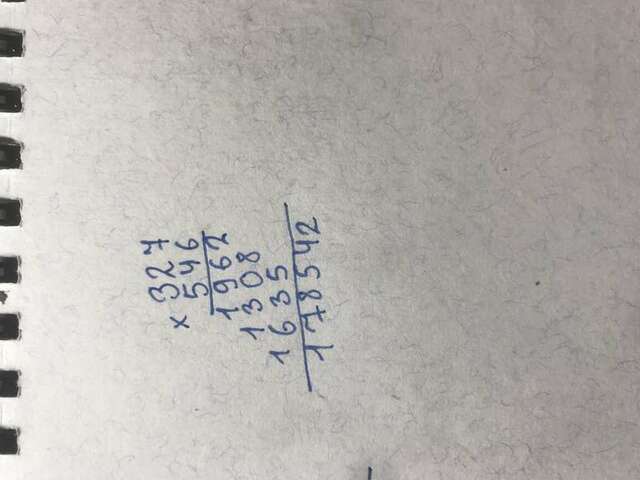 × 327
546
1962
1308
1635
178542